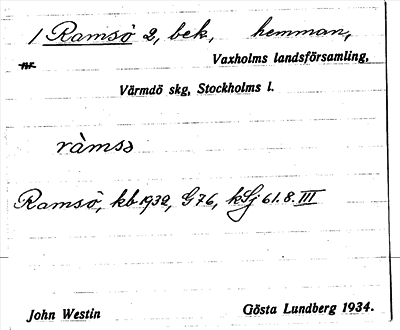 1 Ramsö 2, bek, hemman,
nr Vaxholms landsförsamling,
Värmdö skg, Stockholms l.
ràmsə
Ramsö, kb 1932, G76, kSj 61.8.III
John Westin Gösta Lundberg 1934.